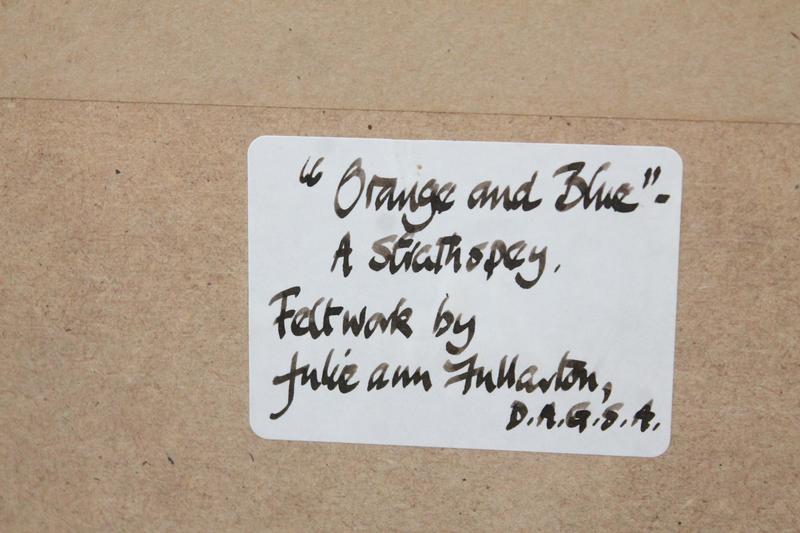 "Orange and Blue"-
A Strathspey.
Feltwork by
Julie ann Fullarton,
D.A.G.S.A.